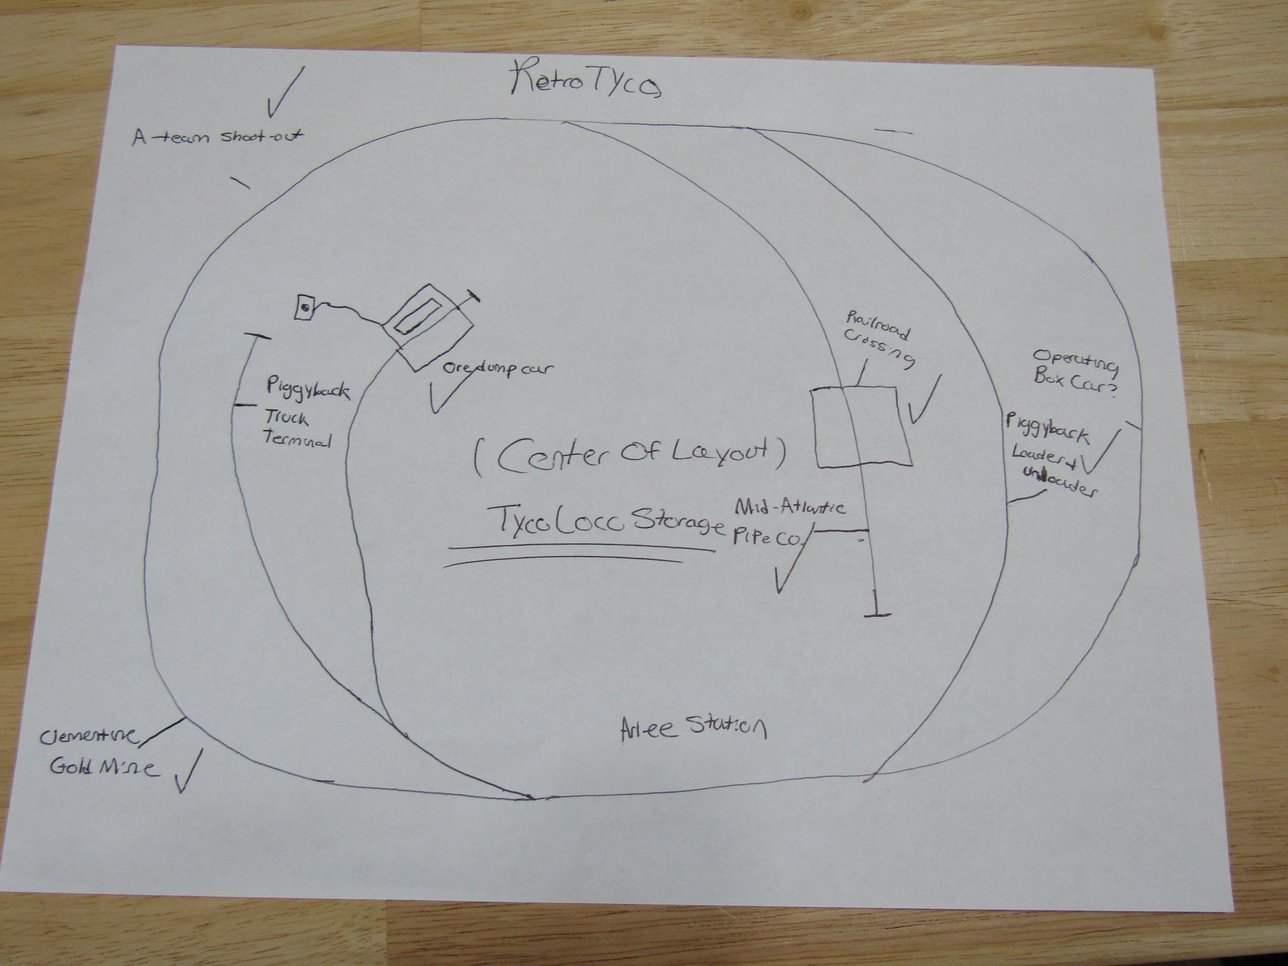 Retro Tyco
A-team shoot-out
Railroad
Crossing
Operating
Box Car?
Ore dump car
Piggyback
Truck
Terminal
Piggyback
Loader +
unloader
(Center Of Layout)
Tyco Loco Storage
Mid-Atlantic
Pipe Co.
Arlee Station
Clementine
Gold Mine